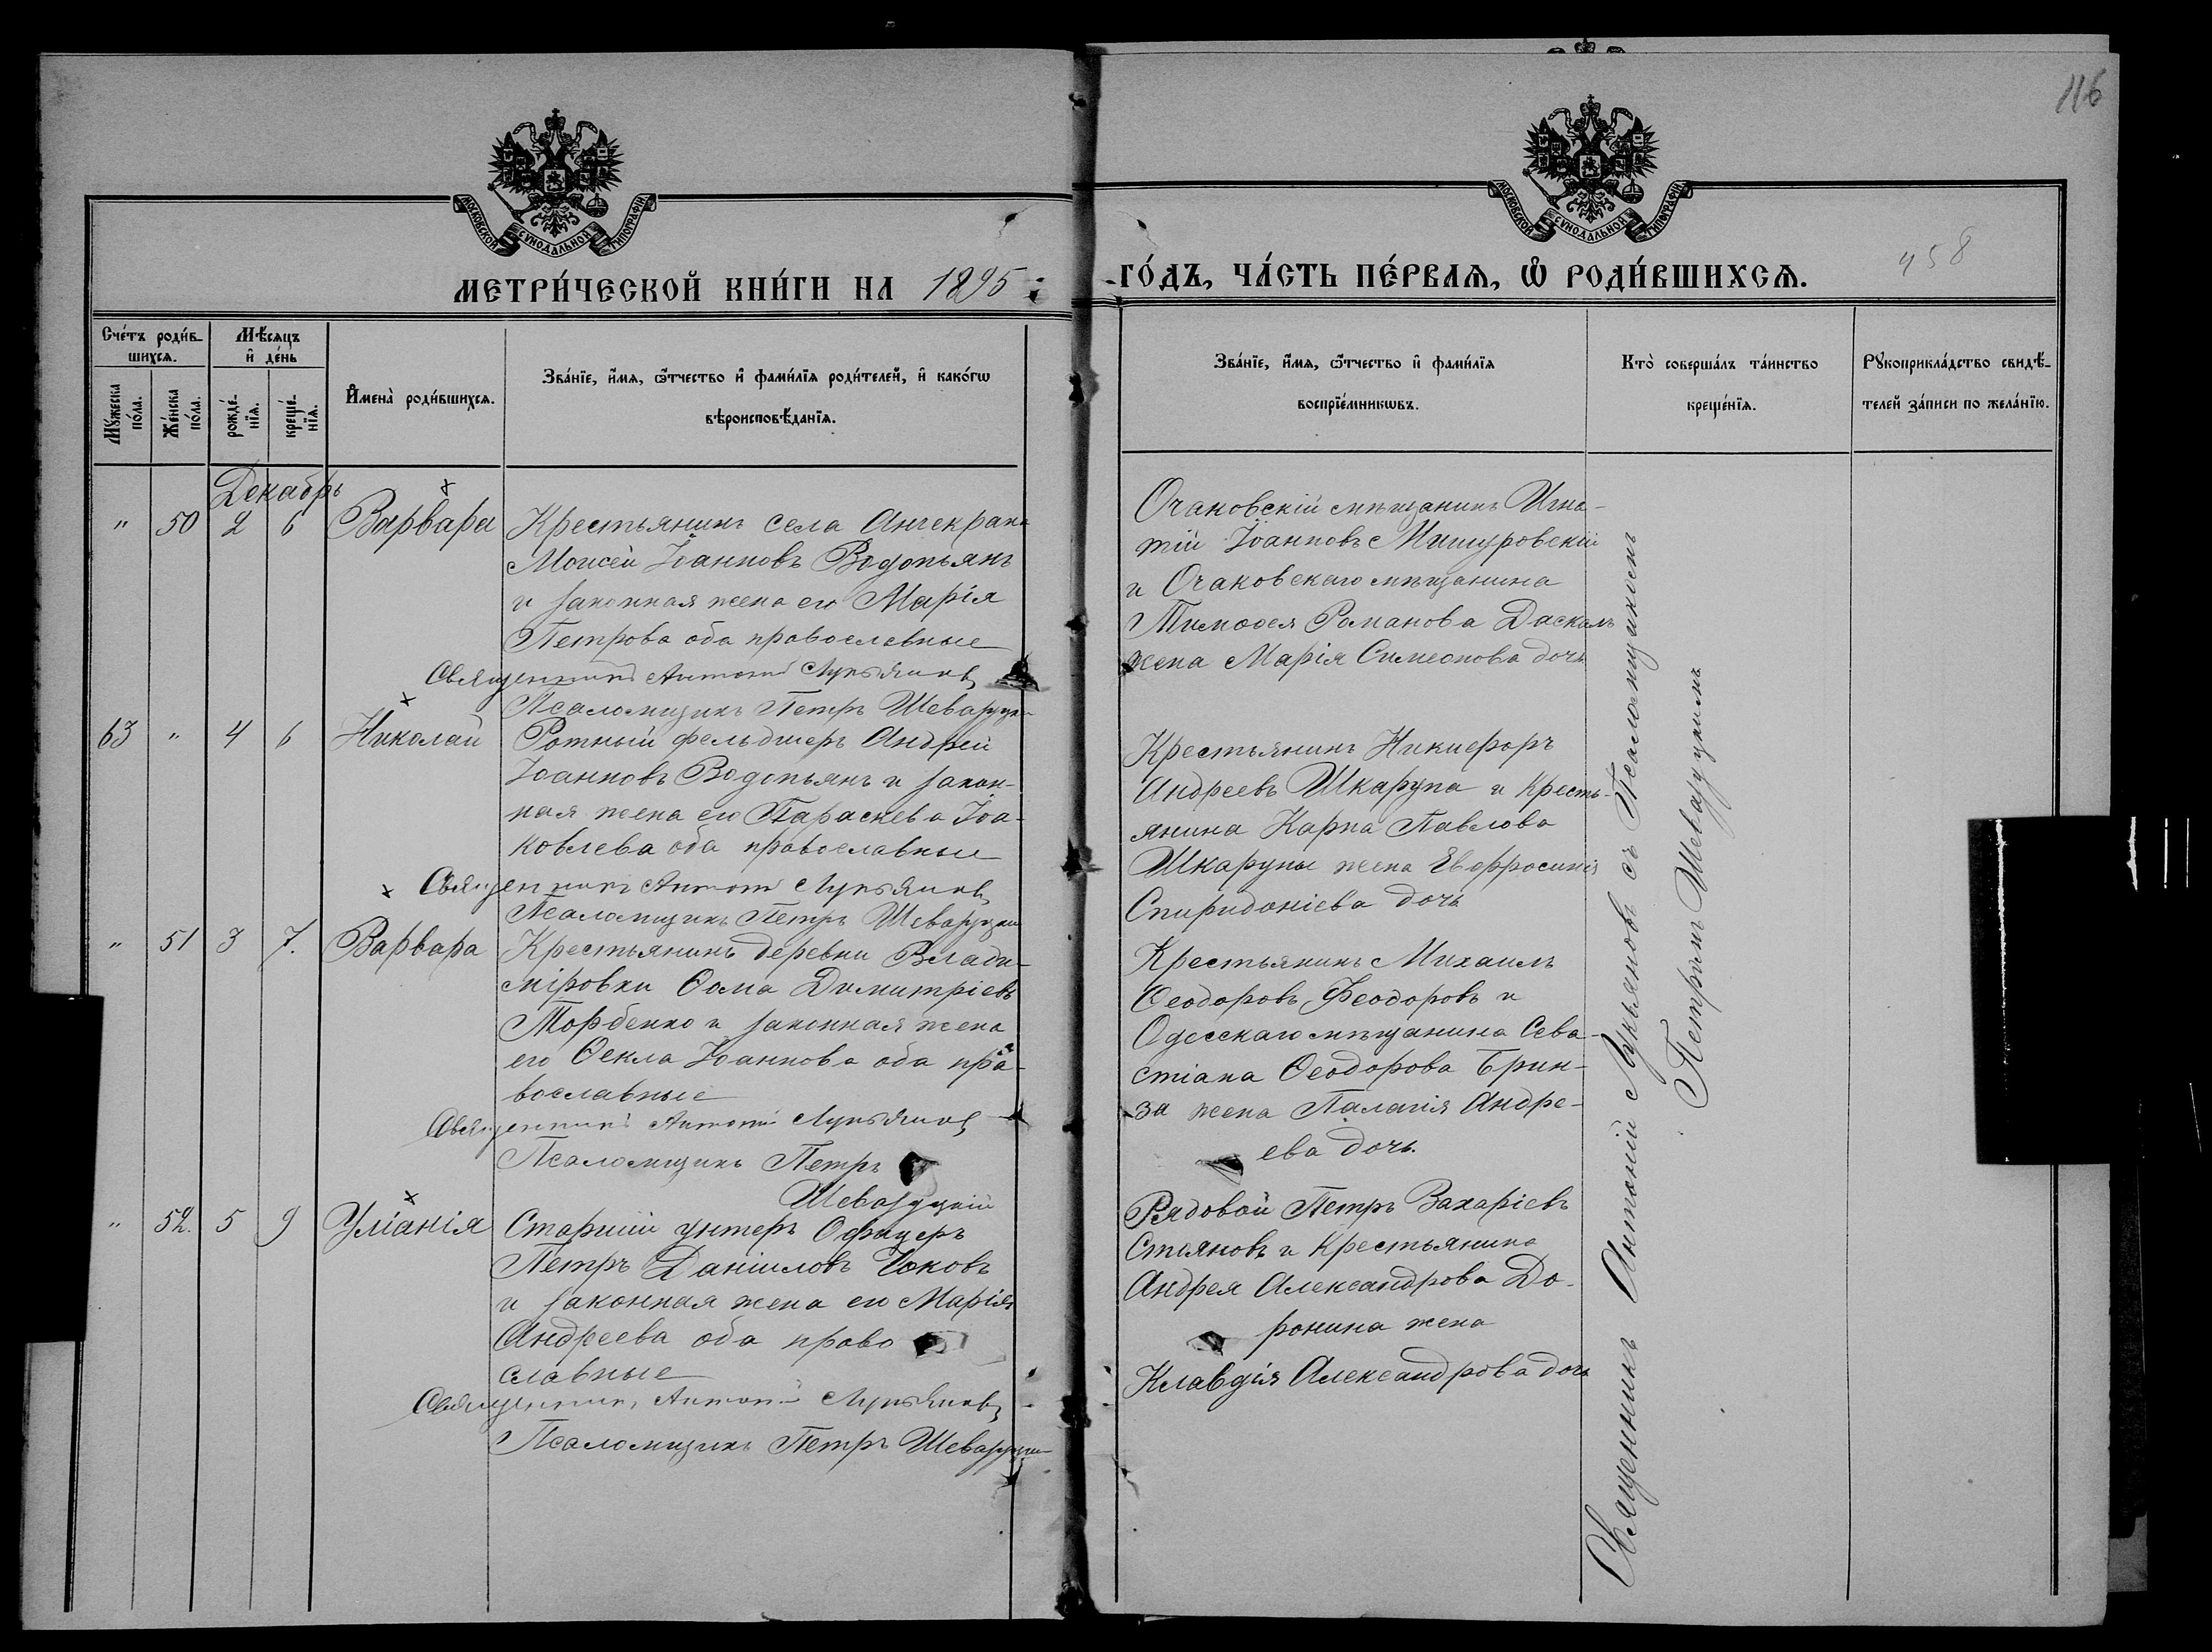 116
МОСКОВСКОЙ СѴНОДАЛЬНОЙ ТИПОГРАФІИ
МОСКОВСКОЙ СѴНОДАЛЬНОЙ ТИПОГРАФІИ
458
МЕТРИ́ЧЕСКОЙ КНИ́ГИ НА 1895
ГО́ДЪ, ЧА́СТЬ ПЕ́РВАѦ, Ѡ҆ РОДИ́ВШИХСѦ.
Сче́тъ роди́в-
шихсѧ.
Мѣ́сѧцъ
и҆ де́нь
Мꙋ́жеска по́ла.
Же́нска по́ла.
рожде́-
нїѧ.
креще́-
нїѧ.
И҆мена̀ роди́вшихсѧ.
Зва́нїе, и҆́мѧ, ѻ҆́тчество и҆ фами́лїѧ роди́телей, и҆ како́гѡ
вѣроисповѣ́данїѧ.
Зва́нїе, и҆́мѧ, ѻ҆́тчество и҆ фами́лїѧ
воспрїе́мникѡвъ.
Кто̀ соверша́лъ та́инство
креще́нїѧ.
Рꙋкоприкла́дство свидѣ́-
телей за́писи по жела́нїю.
Декабрь
" 50 2 6 Варвара
Крестьянинъ села Анчекрака
Моисей Іоанновъ Водопьянъ
и законная жена его Марія
Петрова оба православные
Священникъ Антоній Лукьяновъ
Псаломщикъ Петръ Шевазуцкій
Очаковскій мѣщанинъ Игна-
тій Іоанновъ Мишуровскій
и Очаковскаго мѣщанина
Тимоѳея Романова Даскалъ
жена Марія Симеонова дочь
63 " 4 6 Николай
Ротный фельдшеръ Андрей
Іоанновъ Водопьянъ и закон-
ная жена его Параскева Іоа-
ковлева оба православные
Священникъ Антоній Лукьяновъ
Псаломщикъ Петръ Шевазуцкій
Крестьянинъ Никифоръ
Андреевъ Шкарупа и кресть-
янина Карпа Павлова
Шкарупы жена Евфросинія
Спиридоніева дочь
" 51 3 7. Варвара
Крестьянинъ деревни Влади-
міровки Ѳома Димитріевъ
Торбенко и законная жена
его Ѳекла Іоаннова оба пра-
вославные
Священникъ Антоній Лукьяновъ
Псаломщикъ Петръ
Шевазуцкій
Крестьянинъ Михаилъ
Ѳеодоровъ Феодоровъ и
Одесскаго мѣщанина Сева-
стіана Ѳеодорова Брин-
за жена Палагія Андре-
ева дочь.
" 52. 5 9 Уліанія
Старшій унтеръ Офицеръ
Петръ Даніиловъ Чоковъ
и законная жена его Марія
Андреева оба право
славные
Священникъ Антоній Лукьяновъ
Псаломщикъ Петръ Шевазуцкій
Рядовой Петръ Захаріевъ
Стояновъ и Крестьянина
Андрея Александрова До-
ронина жена
Клавдія Александрова дочь
Священникъ Антоній Лукьяновъ съ Псаломщикомъ
Петромъ Шевазуцкимъ